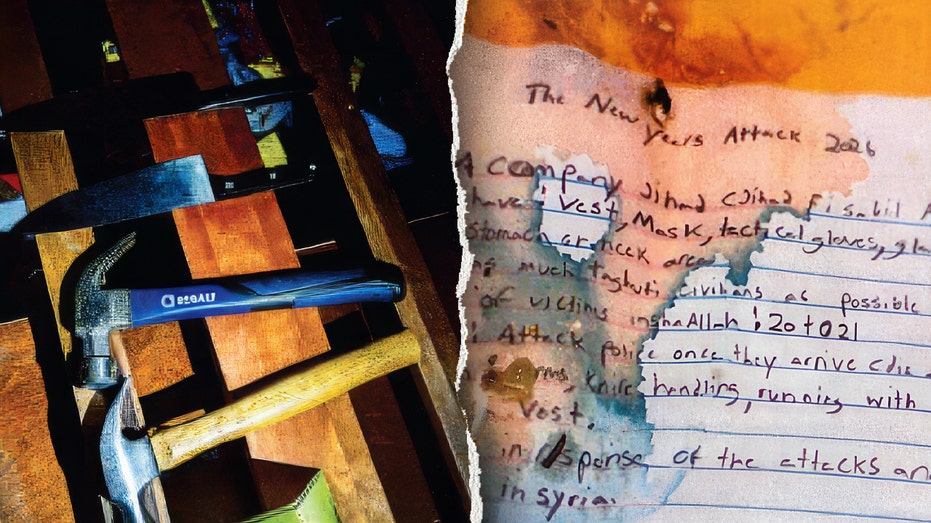 The New Years Attack 2026
A company Jihad CJihad Fi sabil A
have : Vest, Mask, tactical gloves, gla
stomach or neck area
ng much taghuti civilians as possible
of victims inshaAllah : 20 to 21
Attack police once they arrive Cdie
rms, knife handling, running with
Vest.
in response of the attacks and
in Syria.